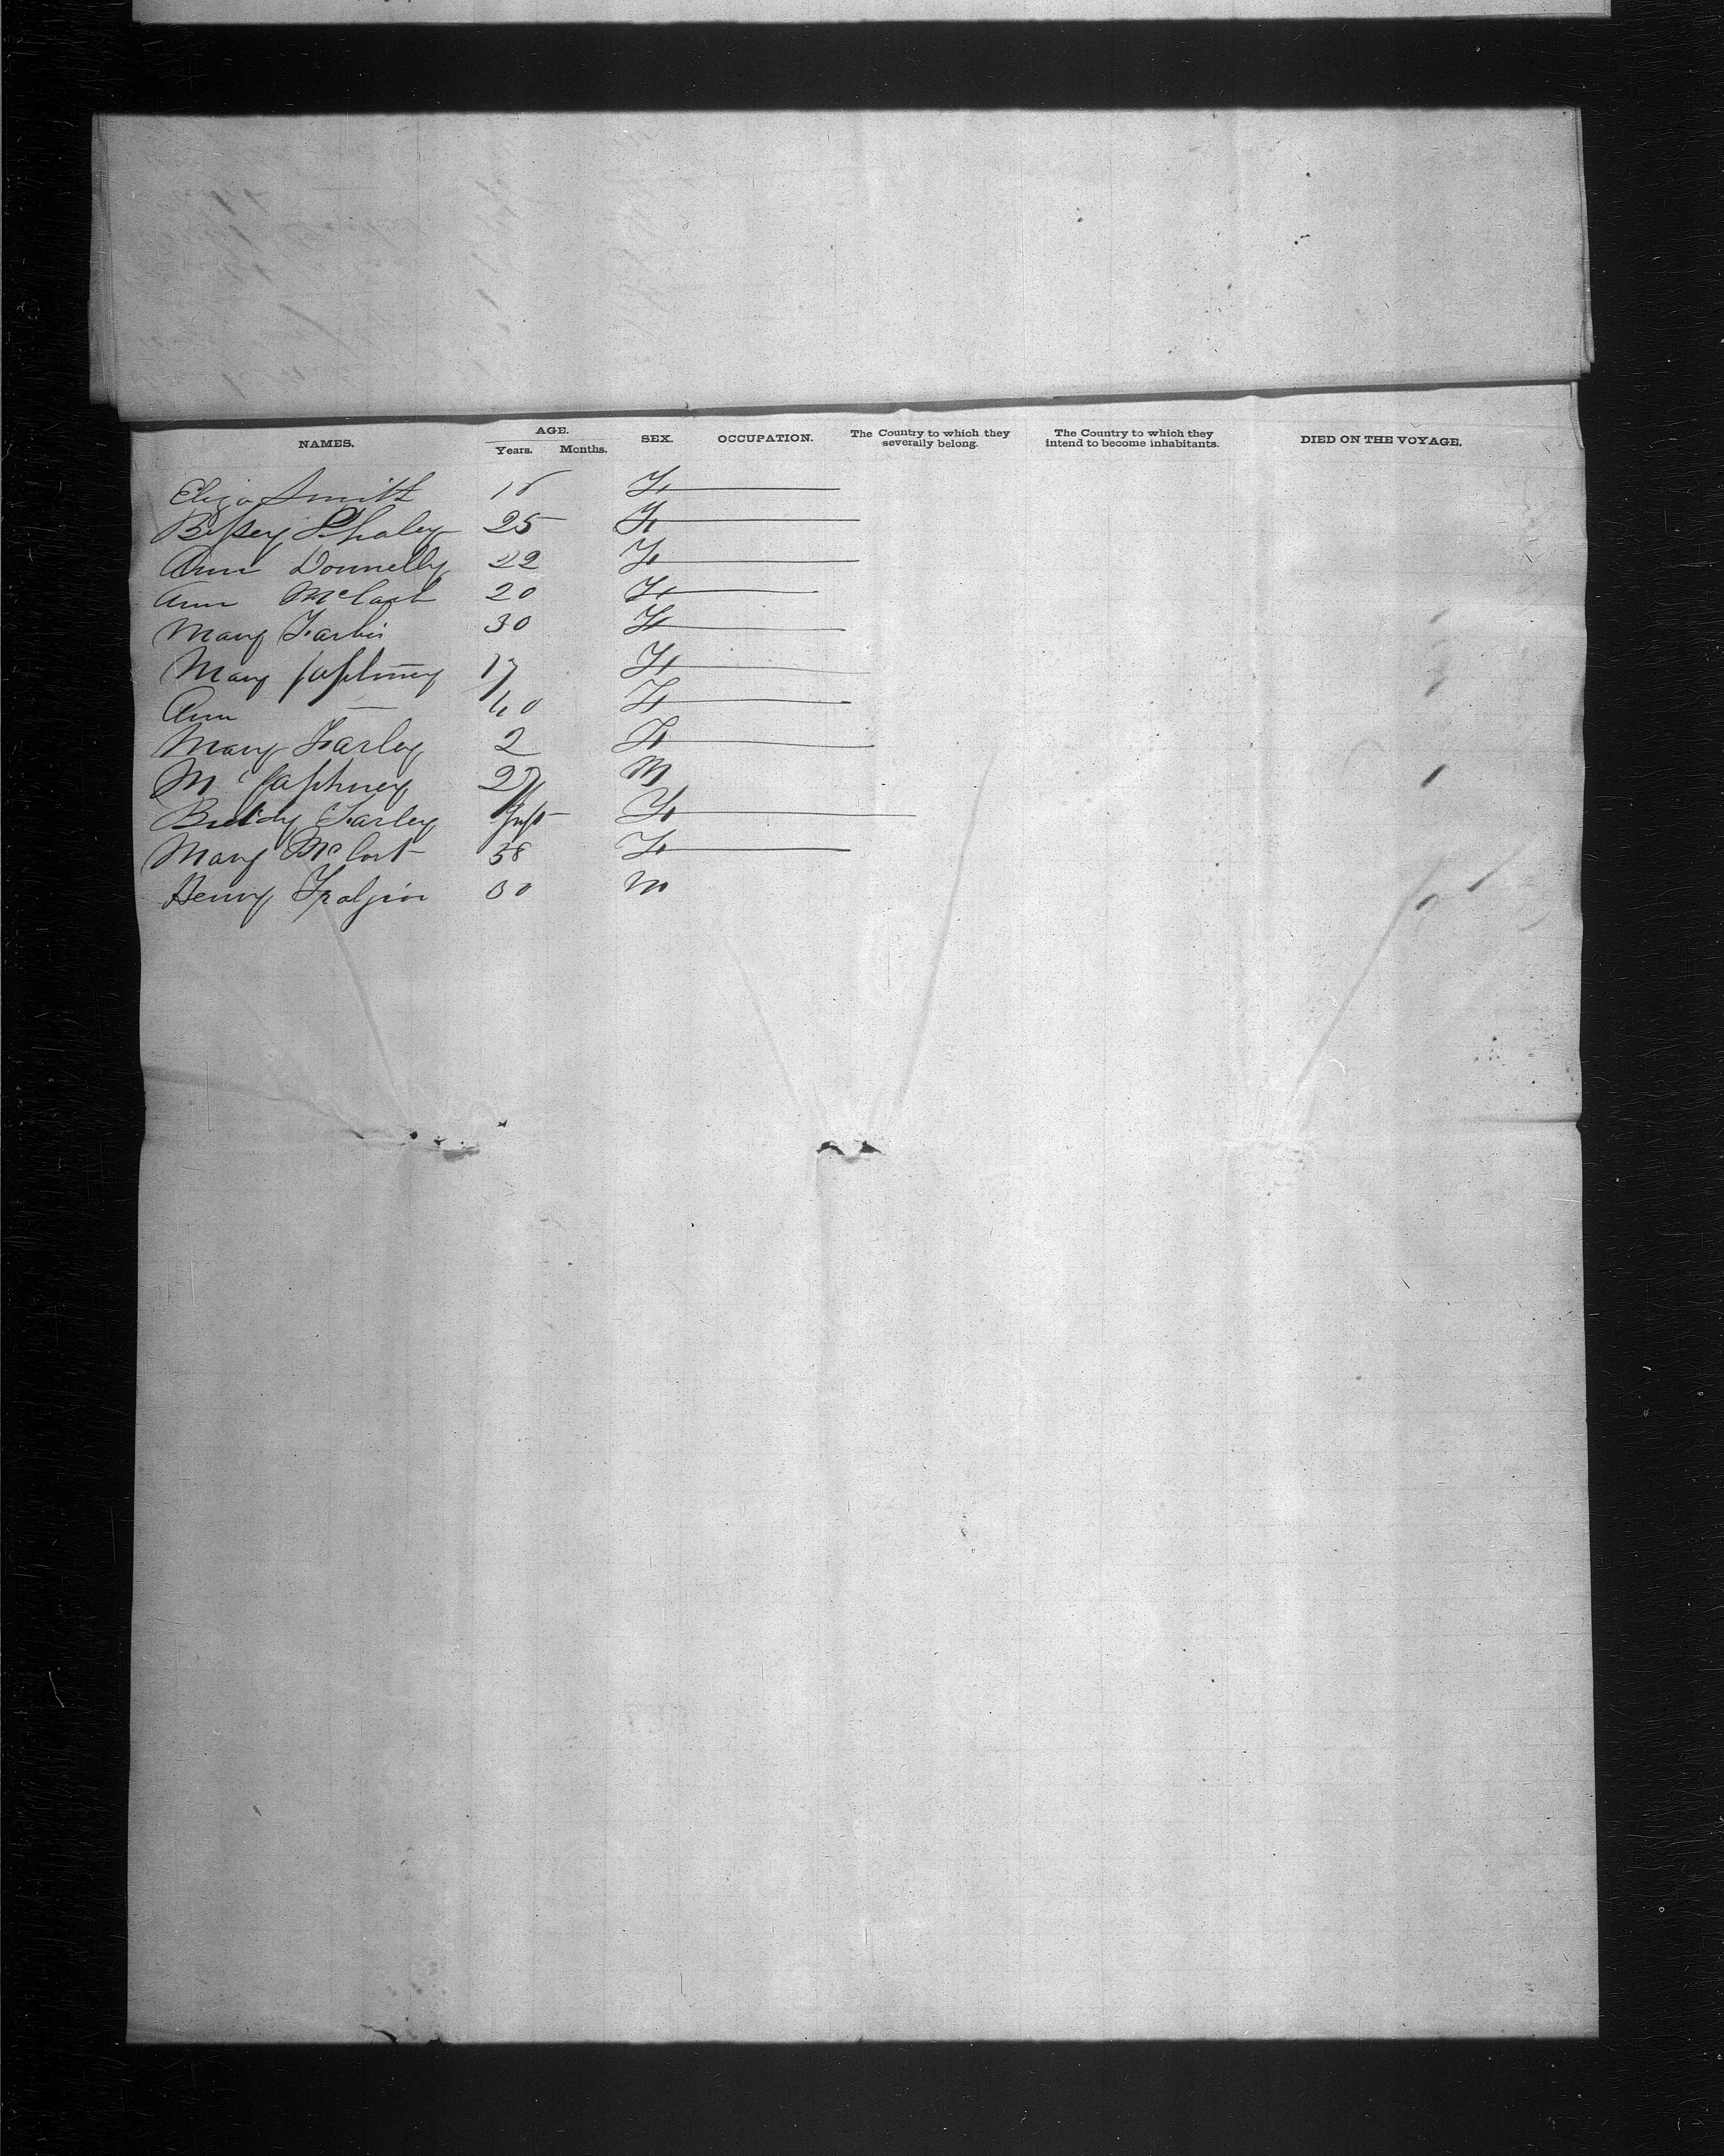 NAMES. AGE. Years. Months. SEX. OCCUPATION. The Country to which they severally belong. The Country to which they intend to become inhabitants. DIED ON THE VOYAGE.
Eliza Smith 18 F
Bessey 25 F
Ann Donnelly 22 F
Ann 20 F
Mary 30 F
Mary 17 F
Ann — 40 F
Mary Farley 2 F
M 27 M
Biddy Farley Inft F
Mary McCort 38 F
Henry 30 M